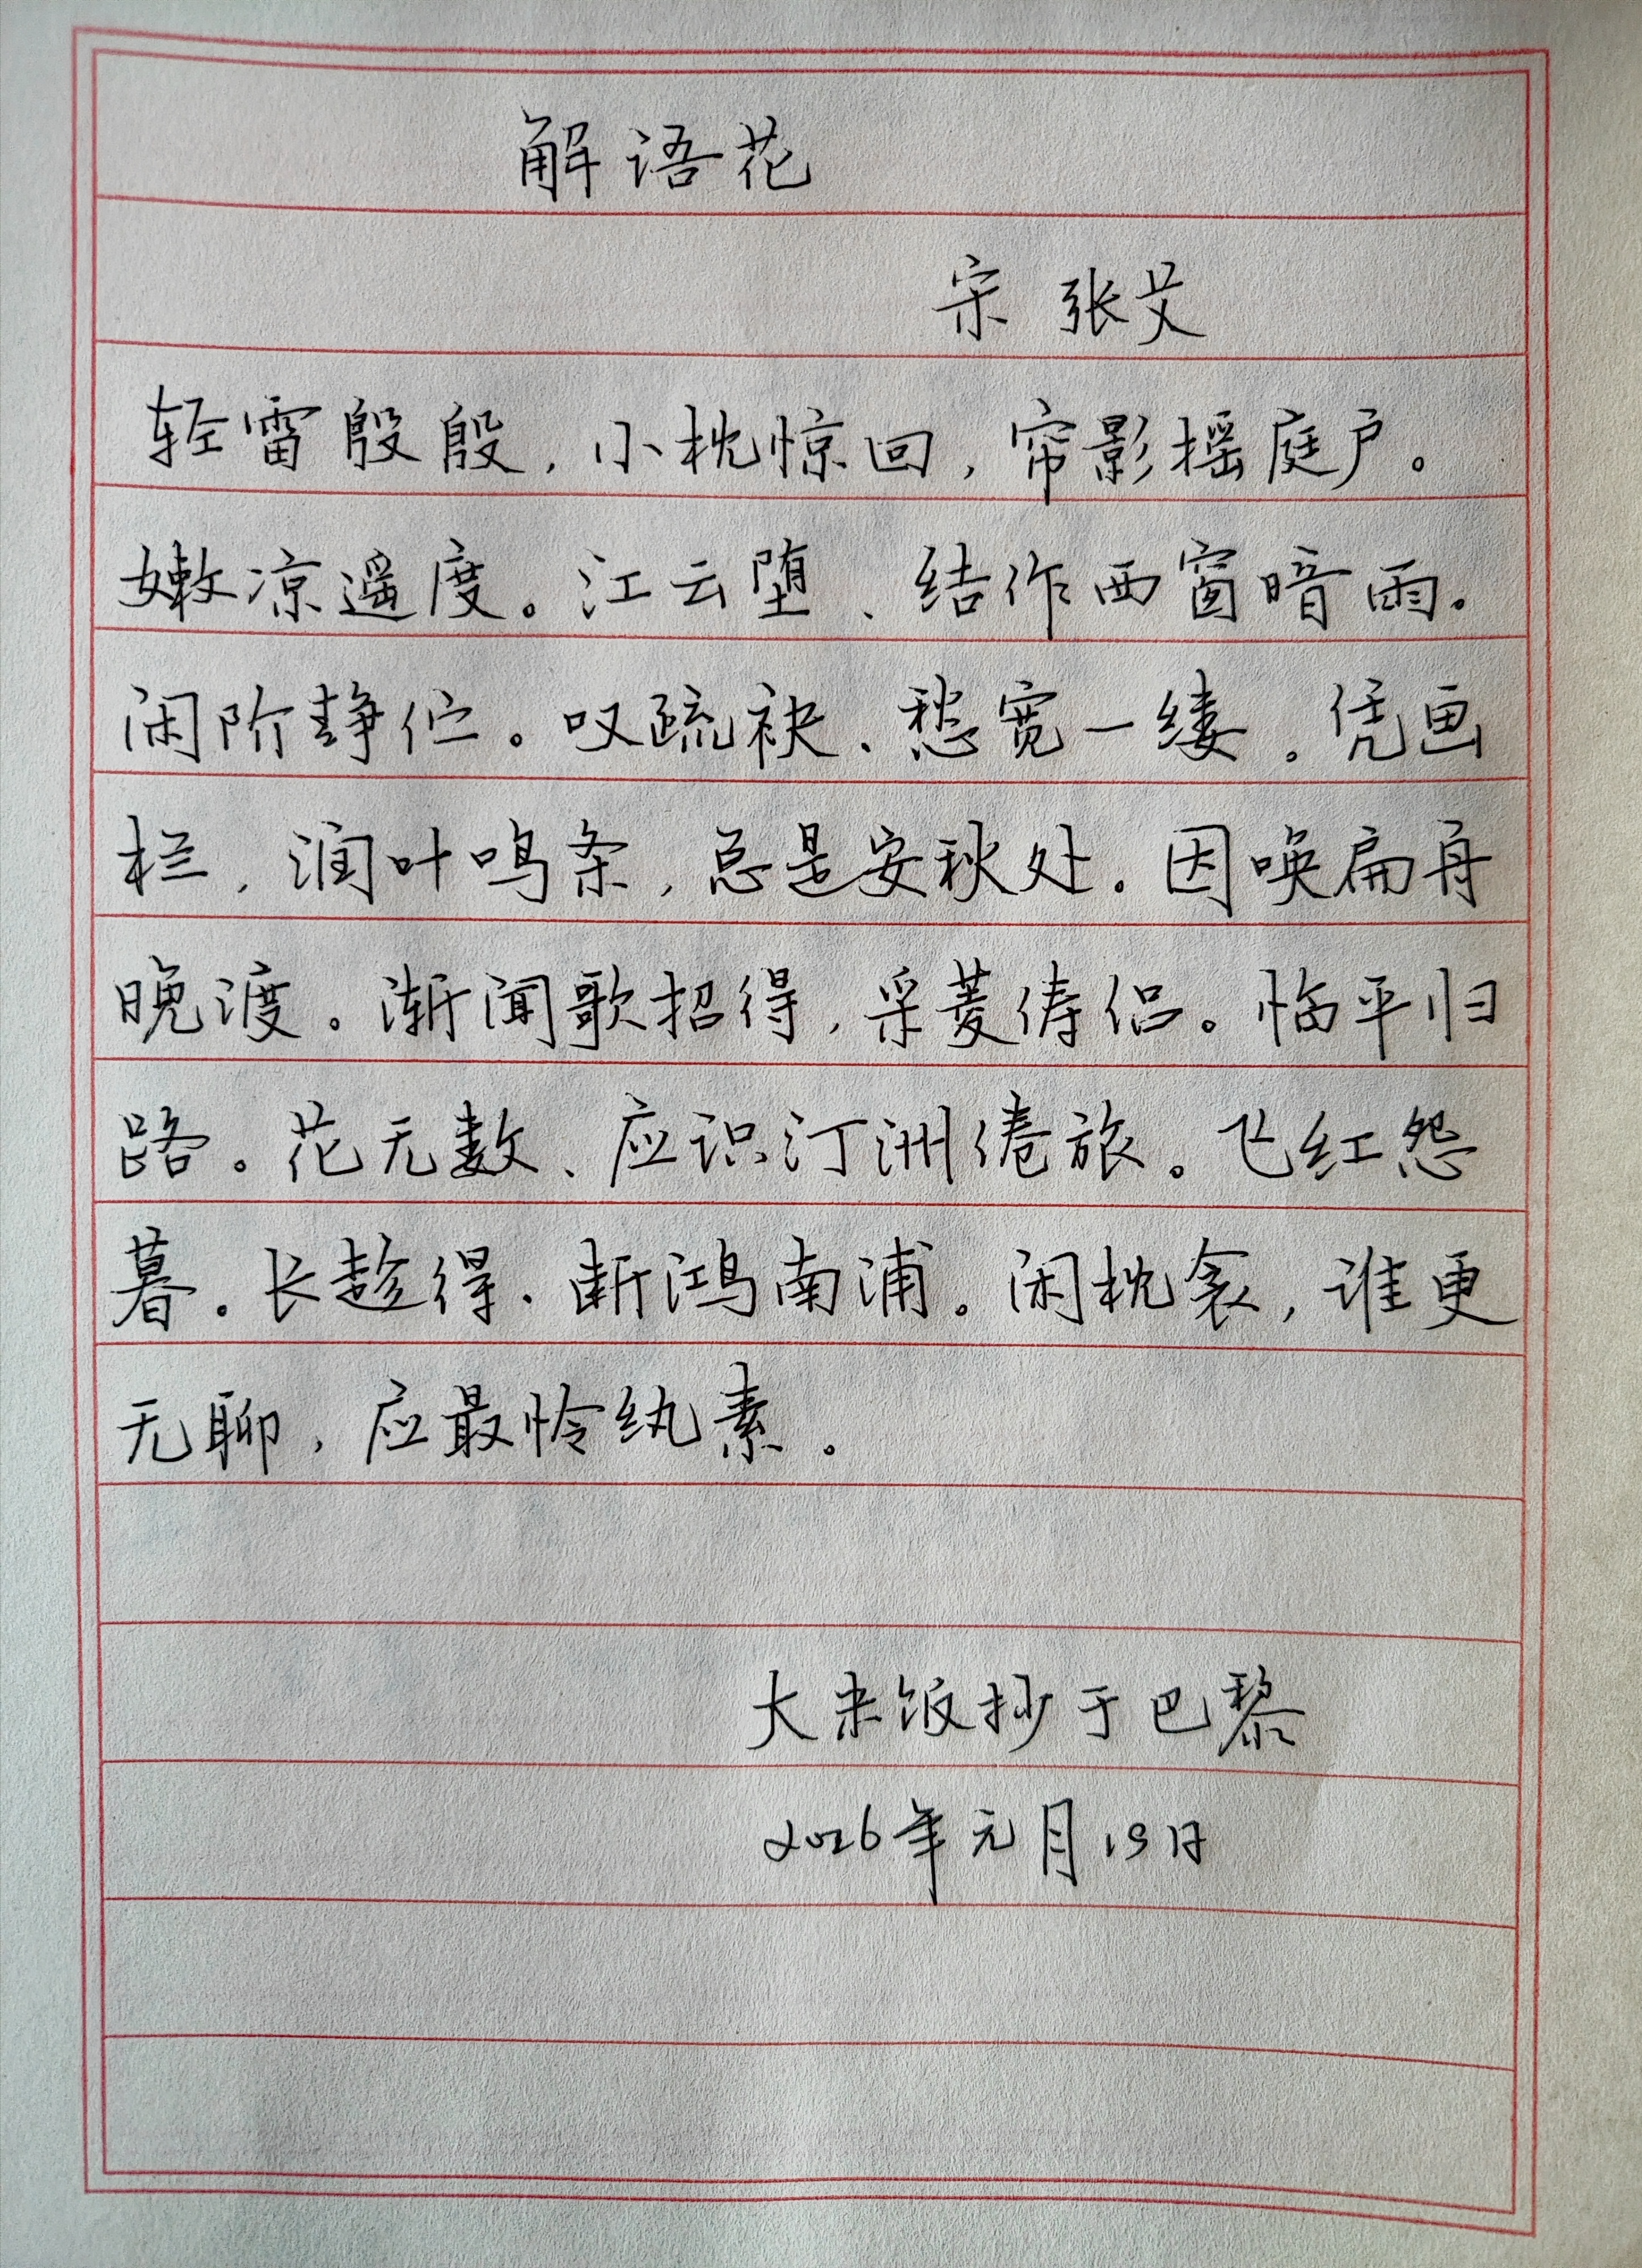 解语花
宋 张艾
轻雷殷殷，小枕惊回，帘影摇庭户。
嫩凉遥度。江云堕、结作西窗暗雨。
闲阶静伫。叹疏袂、愁宽一缕。凭画
栏，润叶鸣条，总是安秋处。因唤扁舟
晚渡。渐闻歌招得，采菱俦侣。临平归
路。花无数、应识汀洲倦旅。飞红怨
暮。长趁得、断鸿南浦。闲枕衾，谁更
无聊，应最怜纨素。
大米饭抄于巴黎
2026年元月19日